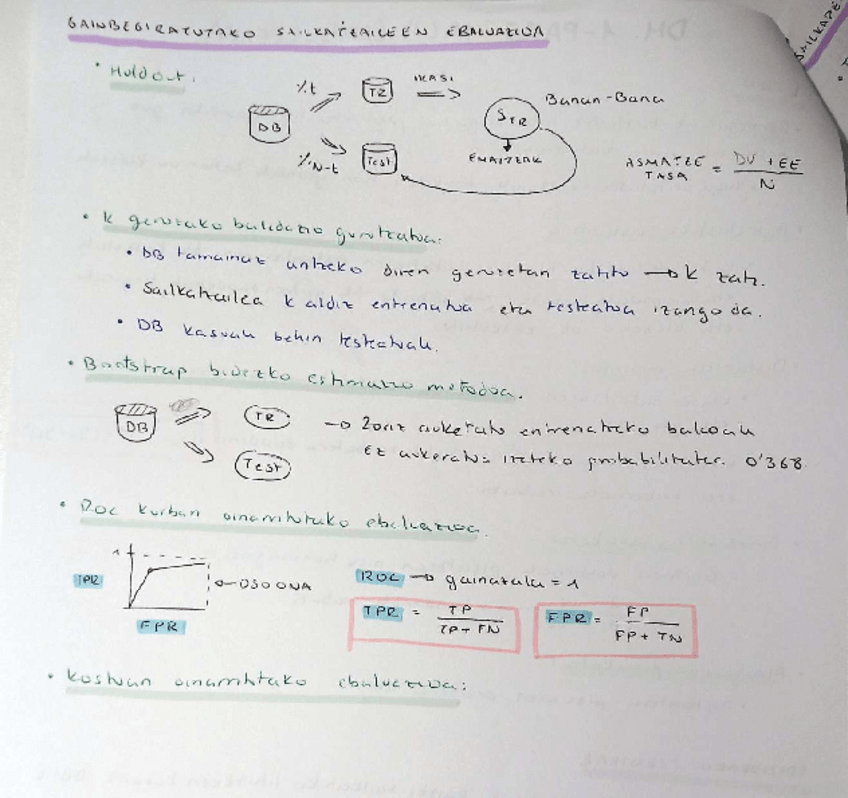 GAINBEGIRATUTAKO SAILKATZAILEEN EBALUAZIOA
• Holdout:
DB
%t
TR
IKASI
STR
Banan-Bana
%N-t
Test
EMAITZAK
ASMATZE TASA = DV + EE / N
• K geruzako balidazio gurutzatua:
• DB tamainaz antzeko diren geruzetan zatitu → K zati.
• Sailkatzailea k aldiz entrenatua eta testeatua izango da.
• DB kasuak behin testeatuak.
• Bootstrap bidezko estimazio metodoa.
DB
TR
Test
→ Zoriz aukeratu entrenatzeko balioak
Ez aukeratua izateko probabilitatea: 0'368
• ROC kurban oinarritutako ebaluazioa.
1
TPR
← OSO ONA
FPR
ROC → gainazala = 1
TPR = TP / TP + FN
FPR = FP / FP + TN
• Kostuan oinarritutako ebaluazioa:
SAILKAPE